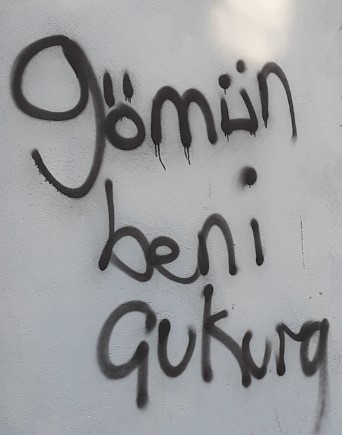 gömün
beni
Çukura